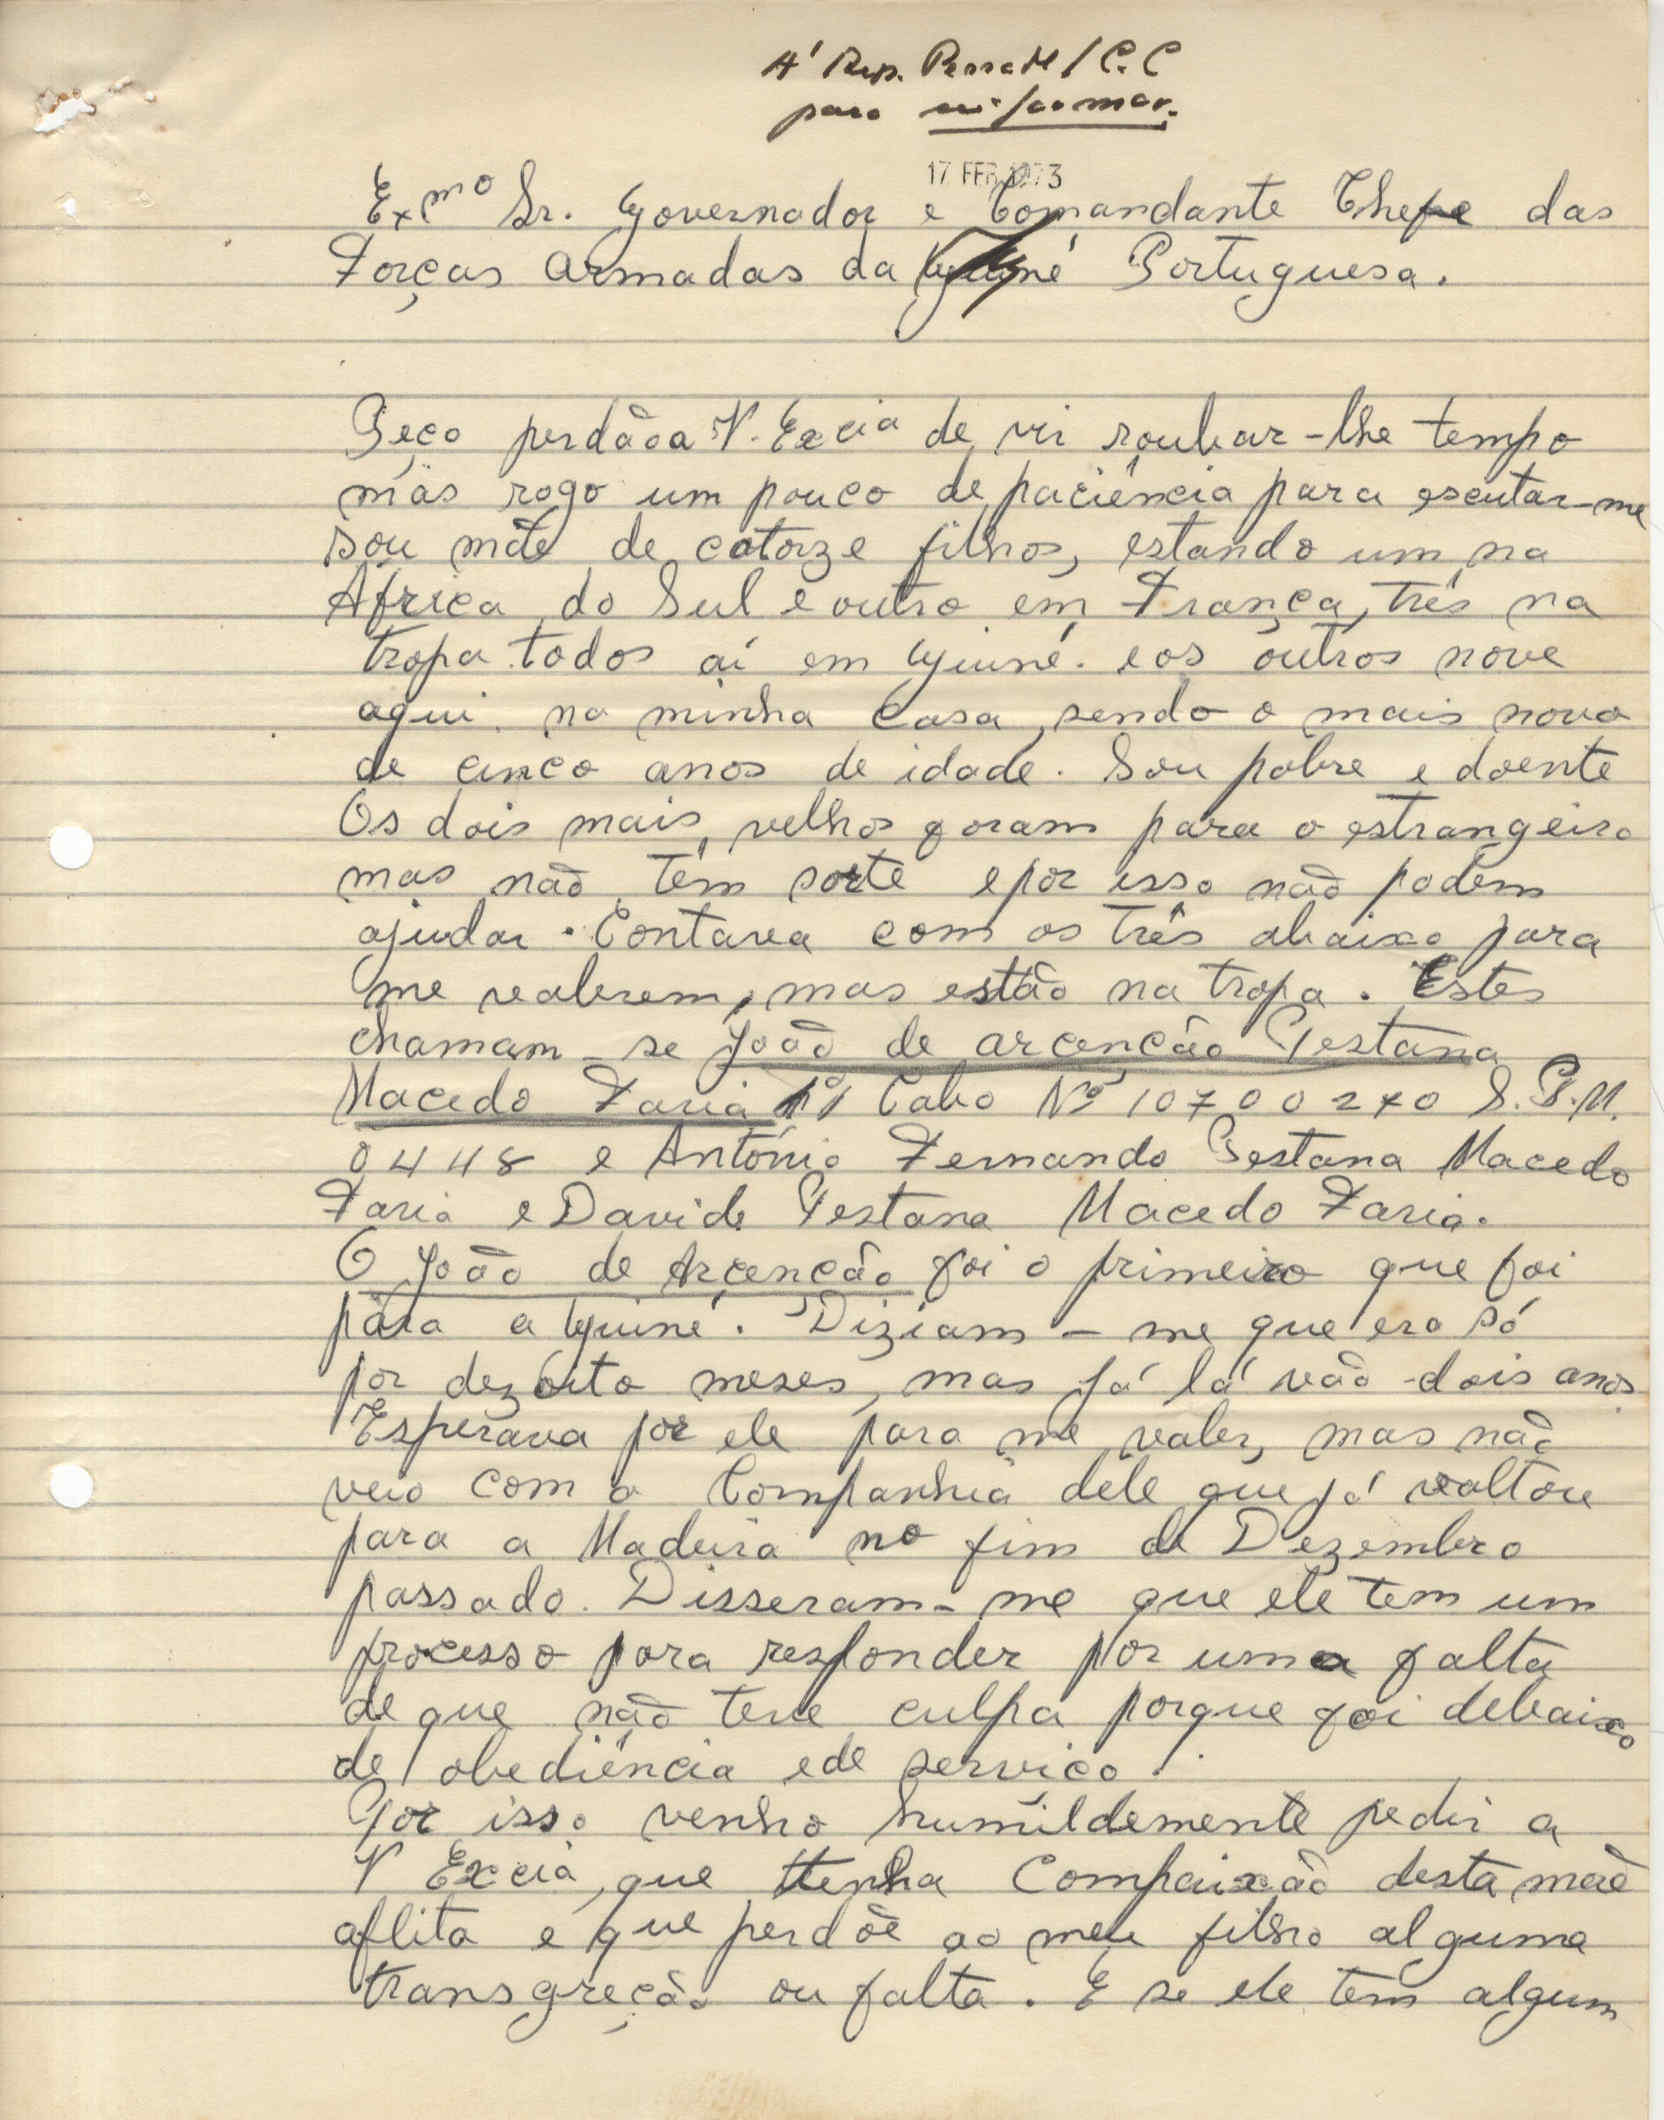 À Rep. Pessoal / C.C
para informar.
17 FEB 1973
Exmo Sr. Governador e Comandante Chefe das
Forças Armadas da Guiné Portuguesa.
Peço perdão a V. Excia de vir roubar-lhe tempo
mas rogo um pouco de paciência para escutar-me
sou mãe de catorze filhos, estando um na
Africa do Sul e outro em França, três na
tropa todos aí em Guiné. e os outros nove
aqui na minha casa, sendo o mais novo
de cinco anos de idade. Sou pobre e doente
Os dois mais velhos foram para o estrangeiro
mas não têm sorte e por isso não podem
ajudar. Contava com os três abaixo para
me valerem, mas estão na tropa. Estes
chamam-se João de arcenção Pestana
Macedo Faria 1º Cabo Nº 10700270 S.P.M.
0448 e António Fernando Pestana Macedo
Faria e Davide Pestana Macedo Faria.
O João de Arcenção foi o primeiro que foi
para a Guiné. Diziam-me que era só
por dezoito meses, mas já lá vão dois anos
Esperava por ele para me valer, mas não
veio com a Companhia dele que já voltou
para a Madeira no fim de Dezembro
passado. Disseram-me que ele tem um
processo para responder por uma falta
de que não teve culpa porque foi debaixo
de obediência e de serviço.
Por isso venho humildemente pedir a
V Excia, que tenha Compaixão desta mãe
aflita e que perdõe ao meu filho alguma
transgreção ou falta. E se ele tem algum